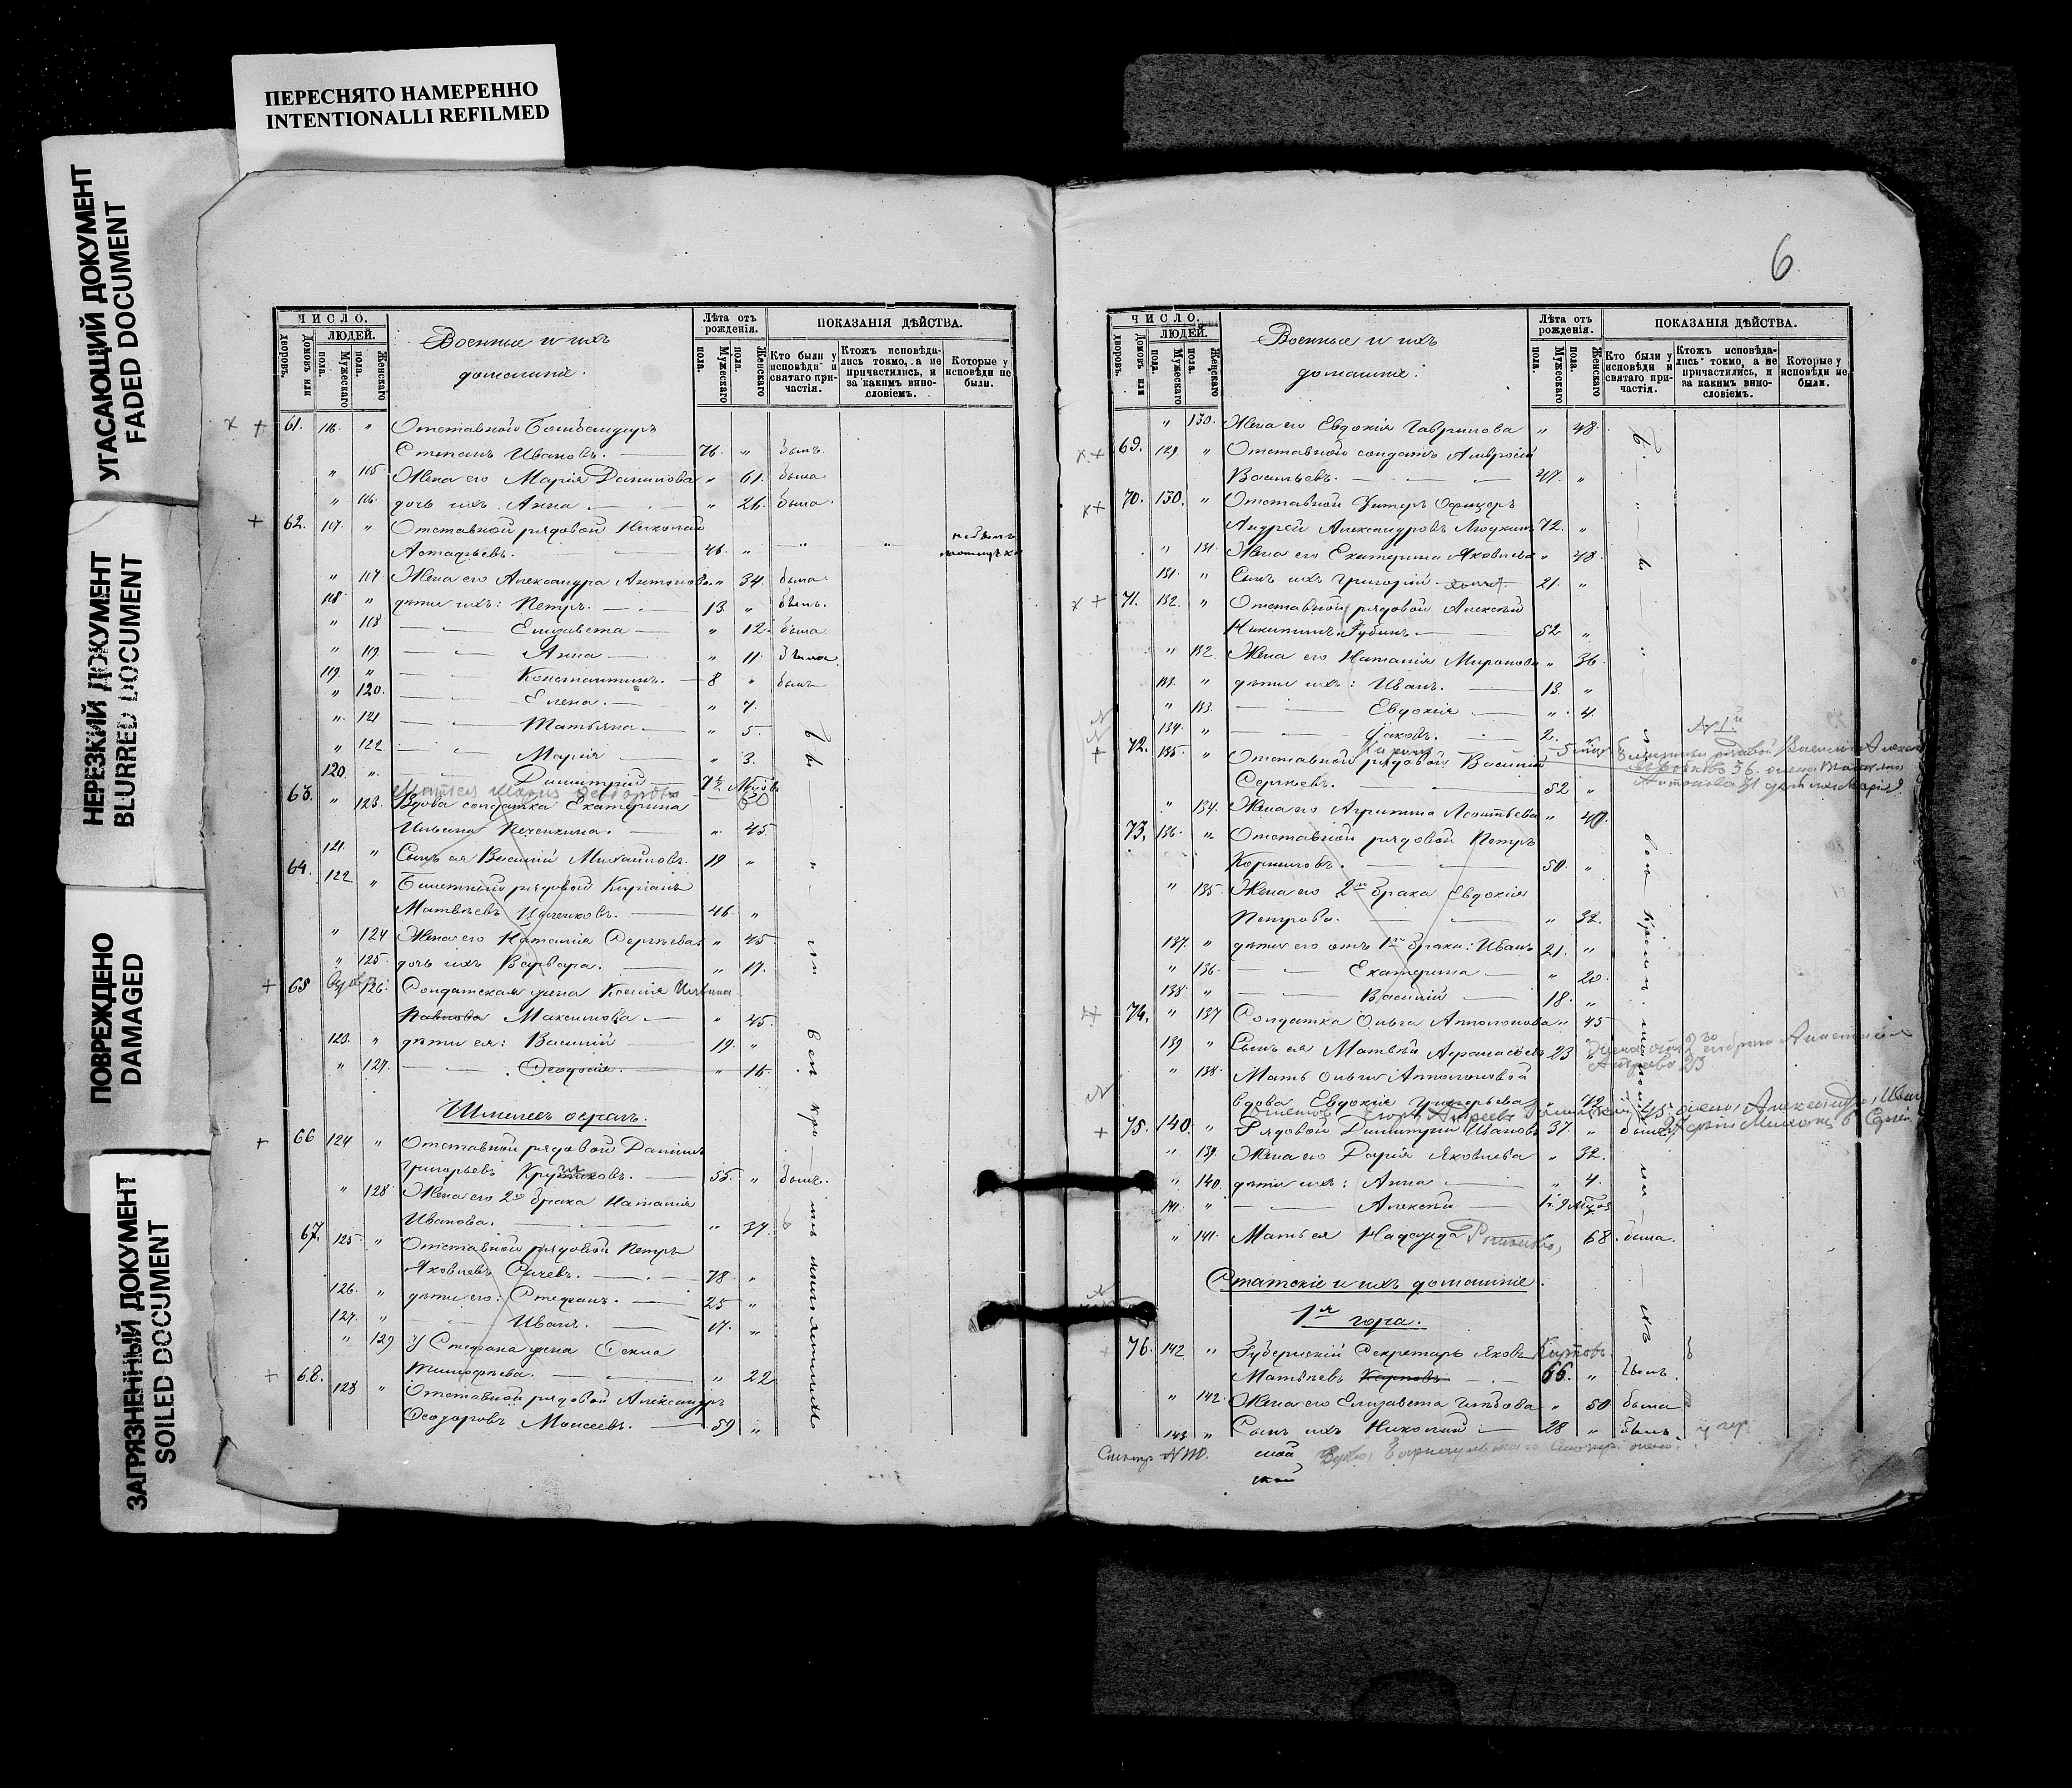 ПЕРЕСНЯТО НАМЕРЕННО
INTENTIONALLI REFILMED
УГАСАЮЩИЙ ДОКУМЕНТ
FADED DOCUMENT
НЕРЕЗКИЙ ДОКУМЕНТ
BLURRED DOCUMENT
ПОВРЕЖДЕНО
DAMAGED
ЗАГРЯЗНЕННЫЙ ДОКУМЕНТ
SOILED DOCUMENT
ЧИСЛО.
ЛЮДЕЙ.
Домовъ или дворовъ.
Мужескаго пола.
Женскаго пола.
Военные и ихъ
домашніе.
Лѣта отъ рожденія.
Мужескаго пола.
Женскаго пола.
ПОКАЗАНІЯ ДѢЙСТВА.
Кто были у исповѣди и святаго причастія.
Ктожъ исповѣдались токмо, а не причастились, и за какимъ винословіемъ.
Которые у исповѣди не были.
61. 116. " Отставной Бомбандиръ
Степанъ Ивановъ. 76. " былъ.
" 115 Жена его Марія Данилова " 61. была
" 116. дочь ихъ Анна " 26. была.
62. 117. " Отставной рядовой Николай
Астафьевъ. 46. " " "
" 117 Жена его Александра Антонова " 34. была.
118. " дѣти ихъ: Петръ. 13. " былъ.
" 118 Елизавета " 12. была
" 119 Анна " 11. была
119. " Константинъ. 8 " былъ
" 120. Елена. " 7.
" 121 Татьяна " 5.
" 122 Марія " 3.
120. " Димитрій
63. " 123. Вдова солдатка Екатерина
Ильина " 45
121. " Сынъ ея Василій Михайловъ. 19 "
64. 122 " Билетный рядовой Киріанъ
Матвѣевъ 46. "
" 124 Жена его Наталія Сергѣева " 45
" 125. дочь ихъ Варвара. " 17.
65 126. Солдатская жена Ксенія Ильина
Павлова Максимова " 45.
123. " дѣти ея: Василій 19. "
" 127. Ѳеодосія. " 16.
66 124 " Отставной рядовой Даніилъ
Григорьевъ 55. " былъ.
" 128 Жена его 2го брака Наталія
Иванова. " 37.
67. 125. " Отставной рядовой Петръ
Яковлевъ Сычевъ. 78 "
126. " дѣти его: Стефанъ. 25 "
127. " Иванъ. 17. "
" 129 У Стефана жена Ѳекла
Тимофѣева. " 22
68. 128 " Отставной рядовой Александръ
Ѳеодоровъ Моисеевъ. 59 "
6
ЧИСЛО.
ЛЮДЕЙ.
Домовъ или дворовъ.
Мужескаго пола.
Женскаго пола.
Военные и ихъ
домашніе.
Лѣта отъ рожденія.
Мужескаго пола.
Женскаго пола.
ПОКАЗАНІЯ ДѢЙСТВА.
Кто были у исповѣди и святаго причастія.
Ктожъ исповѣдались токмо, а не причастились, и за какимъ винословіемъ.
Которые у исповѣди не были.
" 130. Жена его Евдокія Гаврилова " 48.
69. 129 " Отставной солдатъ Амвросій
Васильевъ. 47. "
70. 130. " Отставной Унтеръ Офицеръ
Андрей Александровъ 72. "
" 131 Жена его Екатерина Яковлева " 48.
131. " Сынъ ихъ Григорій 21. "
71. 132. " Отставной рядовой Алексѣй
Никитинъ Зубинъ. 52 "
" 132 Жена его Наталія Миронова " 36.
133. " дѣти ихъ: Иванъ. 13. "
" 133. Евдокія " 4.
134. " Яковъ. 2. "
72. 135. " Отставной рядовой Василій
Сергѣевъ. 52 "
" 134. Жена его Агрипина Леонтьева " 40.
73. 136. " Отставной рядовой Петръ
Корниловъ. 50. "
" 135. Жена его 2го брака Евдокія
Петрова. " 32.
137. " дѣти его отъ 1го брака: Иванъ 21. "
" 136. Екатерина " 20.
138. " Василій 18. "
74. " 137 Солдатка Ольга Апполонова " 45
139 " Сынъ ея Матвѣй Афанасьевъ 23 "
" 138. Мать Ольги Апполоновой
вдова Евдокія Григорьева " 72
75. 140. " Рядовой Димитрій Ивановъ 37. "
" 139. Жена его Дарія Яковлева " 32.
" 140. дѣти ихъ: Анна " 4.
141. " Алексѣй
" 141. Мать ея Надежда " 68. была.
Статскіе и ихъ домашніе.
1я гора.
76. 142 " Губернскій Секретарь Яковъ Карповъ
Матвѣевъ Карповъ 66. " былъ.
" 142. Жена его Елизавета Глѣбова " 50 была
143 " Сынъ ихъ Николай 28 " былъ